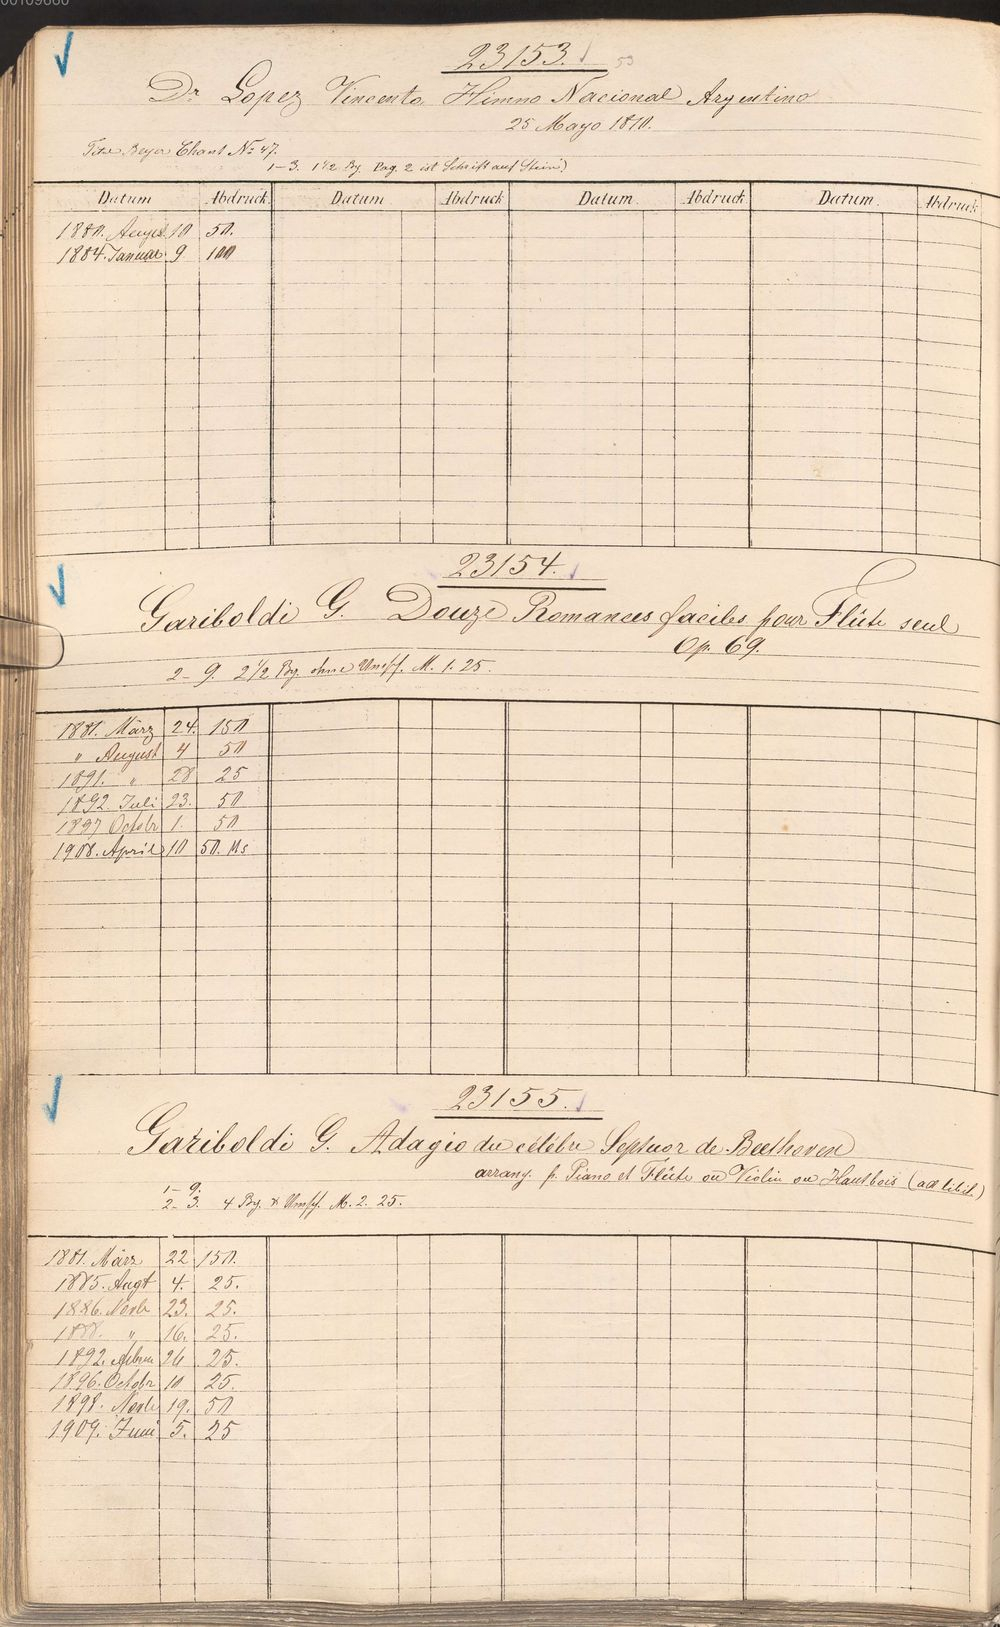 23153.
53
Dr. Lopez Vincento Himno Nacional Argentino
25 Mayo 1810.
Titre Beyer Chant No. 47.
1-3. 1 1/2 Bg. Pag. 2 ist Schrift auf Stein)
Datum Abdruck Datum Abdruck Datum. Abdruck Datum. Abdruck
1880. August 10 50.
1884. Januar 9 100
23154.
Gariboldi G. Douze Romances faciles pour Flûte seul
Op. 69.
2-9. 2 1/2 Bg. ohne Umschl. M. 1. 25.
1881. März 24. 150
" August 4 50
1891. " 28 25
1892. Juli 23. 50
1897 Octobr 1. 50
1908. April 10 50.
23155.
Gariboldi G. Adagio du célèbre Septuor de Beethoven
arrang. p. Piano et Flûte ou Violin ou Hautbois (ad libit.)
1-9.
2-3. 4 Bg. & Umschl. M. 2. 25.
1881. März 22 150.
1885. Augt 4. 25.
1886. Novbr 23. 25.
1888. " 16. 25.
1892. 26 25.
1896. Octobr 10 25.
1898. Novbr 19. 50
1909. Juni 5. 25